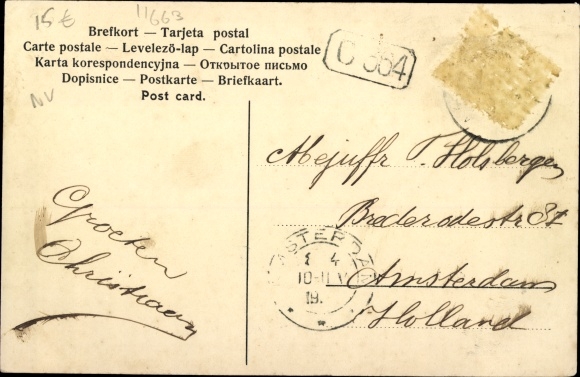 15 €
11663
NV
Brefkort — Tarjeta postal
Carte postale — Levelező-lap — Cartolina postale
Karta korespondencyjna — Открытое письмо
Dopisnice — Postkarte — Briefkaart.
Post card.
Groeten
Christiaan
Mejuffr T. Holsbergen
Brederodestr 87
Amsterdam
Holland
AMSTERDAM
4
10-11 V
19.